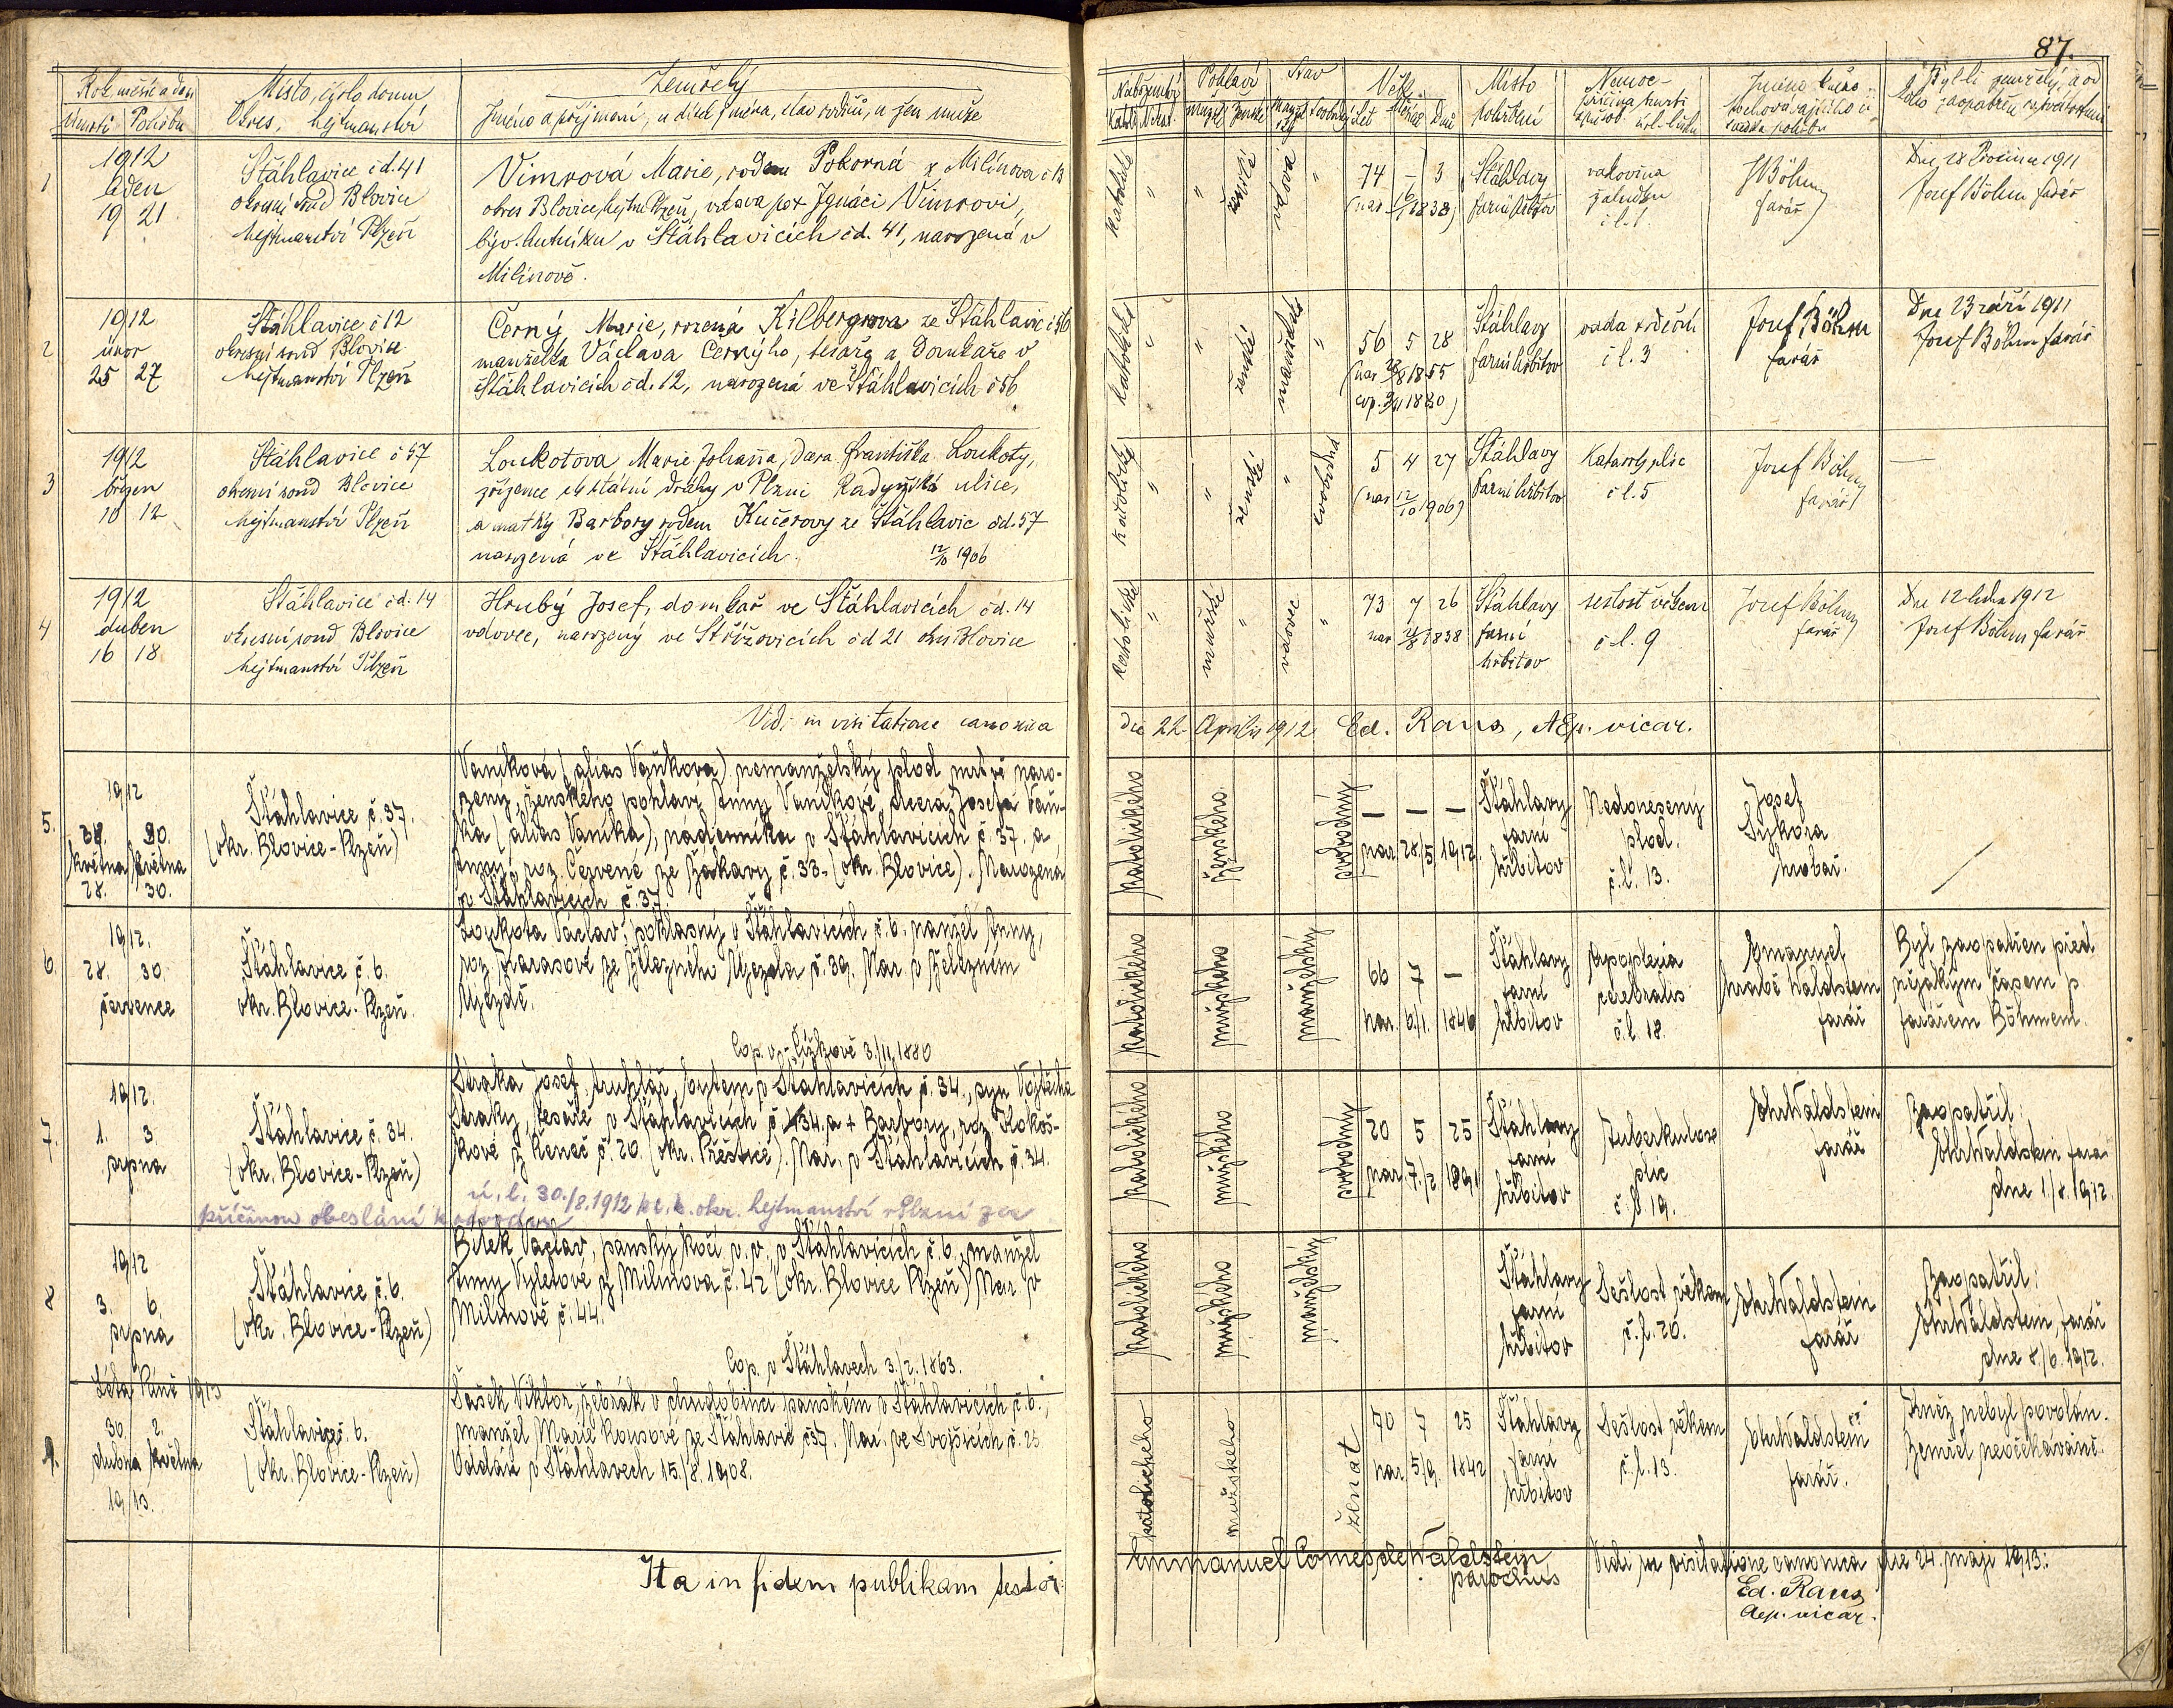 87.
Rok měsíc a den
Úmrtí Pohřbu
Místo, číslo domu
Okres, hejtmanství
Zemřelý
Jméno a příjmení, u dítek jména, stav rodičů, u žen muže
Náboženství
Katol. N.kat.
Pohlaví
mužské ženské
Stav
Věk
Let Měsíc Dnů
Místo
pohřbení
Nemoc
příčina smrti
Jméno kněze
1
1912
leden
19 21
Stáhlavice čd. 41
okresní soud Blovice
hejtmanství Plzeň
Vimrová Marie, rodem Pokorná z Milínova č 13
okres Blovice, hejtm. Plzeň, vdova po + Ignáci Vimrovi,
býv. hutníku v Stáhlavicích čd. 41, narozená v
Milínově.
katolické " " ženské vdova "
74 – 3
(nar 16/1 1838)
Stáhlavy
farní hřbitov
rakovina
žaludku
č l. 1.
J Böhm
farář
Dne 28 Prosince 1911
Josef Böhm farář
2
1912
únor
25 27
Stáhlavice č 12
okresní soud Blovice
hejtmanství Plzeň
Černý Marie, rozená Kilbergrova ze Stáhlavic č 56
manželka Václava Černýho, tesaře a domkaře v
Stáhlavicích čd. 12, narozená ve Stáhlavicích č 56
katolické " " ženské manželská "
56 5 28
(nar 28/8 1855
cop. 9/11 1880)
Stáhlavy
farní hřbitov
vada srdeční
č l. 3
Josef Böhm
farář
Dne 23 září 1911
Josef Böhm farář
3
1912
březen
10 12
Stáhlavice č 57
okresní soud Blovice
hejtmanství Plzeň
Loukotova Marie Johanna, dcera Františka Loukoty,
zřízence státní dráhy v Plzni Radyňská ulice,
a matky Barbory rodem Kučerovy ze Stáhlavic čd. 57
narozená ve Stáhlavicích. 12/10 1906
katolické " " ženské " svobodná
5 4 27
(nar 12/10 1906)
Stáhlavy
farní hřbitov
Katarrh plic
č l. 5
Josef Böhm
farář
—
4
1912
duben
16 18
Stáhlavice čd. 14
okresní soud Blovice
hejtmanství Plzeň
Hrubý Josef, domkař ve Stáhlavicích čd. 14
vdovec, narozený ve Střížovicích čd 21 okres Blovice
katolické " mužské " vdovec "
73 7 26
nar 21/8 1838
Stáhlavy
farní
hřbitov
sešlost věkem
č l. 9
Josef Böhm
farář
Dne 12 ledna 1912
Josef Böhm farář
Vidi in visitatione canonica
die 22. Aprilis 1912 Ed. Raus, AEp. vicar.
5.
1912
28. 30.
května května
28. 30.
Šťáhlavice č. 37.
(okr. Blovice-Plzeň)
Vaníková (alias Vaňková) nemanželský plod mrtvě naro-
zený, ženského pohlaví Anny Vaníkové, dcera Josefa Vaň-
ka (alias Vaníka), nádenníka v Šťáhlavicích č. 37. a
Anny, roz. Červené ze Žákavy č. 33. (okr. Blovice). Narozena
v Šťáhlavicích č. 37.
katolického ženského svobodný
— — —
nar. 28./5. 1912.
Šťáhlavy
farní
hřbitov
Nedonesený
plod.
č. l. 13.
Josef
Sýkora
hrobař.
6.
1912.
28. 30.
července
Šťáhlavice č. 6.
okr. Blovice-Plzeň.
Loukota Václav, poklasný v Šťáhlavicích č. 6. manžel Anny,
roz. Karasové ze Železného Újezda č. 39. Nar. v Železném
Újezdě.
Cop. v Čížkově 3./11. 1880
katolického mužského manželský
66 7 —
nar. 6./1. 1846
Šťáhlavy
farní
hřbitov
Apoplexia
cerebralis
č. l. 18.
Emanuel
hrabě Waldstein
farář
Byl zaopatřen před
nějakým časem p
farářem Böhmem.
7.
1912.
1. 3.
srpna
Šťáhlavice č. 34.
(okr. Blovice-Plzeň)
Straka Josef, truhlář, bytem v Šťáhlavicích č. 34., syn Vojtěcha
Straky, tesaře v Šťáhlavicích č. 34. a + Barbory, roz. Kokoš-
kové z Řeneč č. 20. (okr. Přeštice). Nar. v Šťáhlavicích č. 34.
ú. l. 30./8. 1912 k c. k. okr. hejtmanství v Plzni za
příčinou obeslání k
katolického mužského svobodný
20 5 25
nar. 7./2. 1891
Šťáhlavy
farní
hřbitov
Tuberkulose
plic
č. l. 19.
Waldstein
farář
Zaopatřil:
Waldstein, farář
dne 1./8. 1912.
8
1912
3. 6.
srpna
Šťáhlavice č. 6.
(okr. Blovice-Plzeň)
Bílek Václav, panský kočí v. v., v Šťáhlavicích č. 6., manžel
Anny Vyletové z Milínova č. 42 (okr. Blovice Plzeň) Nar. v
Milínově č. 44.
Cop. v Šťáhlavech 3./2. 1863.
katolického mužského manželský
Šťáhlavy
farní
hřbitov
Sešlost věkem
č. l. 20.
Waldstein
farář
Zaopatřil:
Waldstein, farář
dne 8./6. 1912.
9.
Léta Páně 1913
30. 2.
dubna května
1913.
Šťáhlavice č. 6.
(okr. Blovice-Plzeň)
Sašek Viktor, žebrák v chudobinci panském v Šťáhlavicích č. 6.,
manžel Marie Kousové ze Šťáhlavic č 37. Nar. ve Svojšicích č. 25
Oddán v Šťáhlavech 15./8. 1908.
katolického mužského ženat
70 7 25
nar. 5./9. 1842
Šťáhlavy
farní
hřbitov
Sešlost věkem
č. l. 13.
Waldstein
farář.
Kněz nebyl povolán.
Zemřel neočekávaně.
Ita in fidem publikam testor:
Emmanuel Comes de Waldstein
parochus
Vidi in visitatione canonica die 24. maji 1913:
Ed. Raus
Aep. vicar.